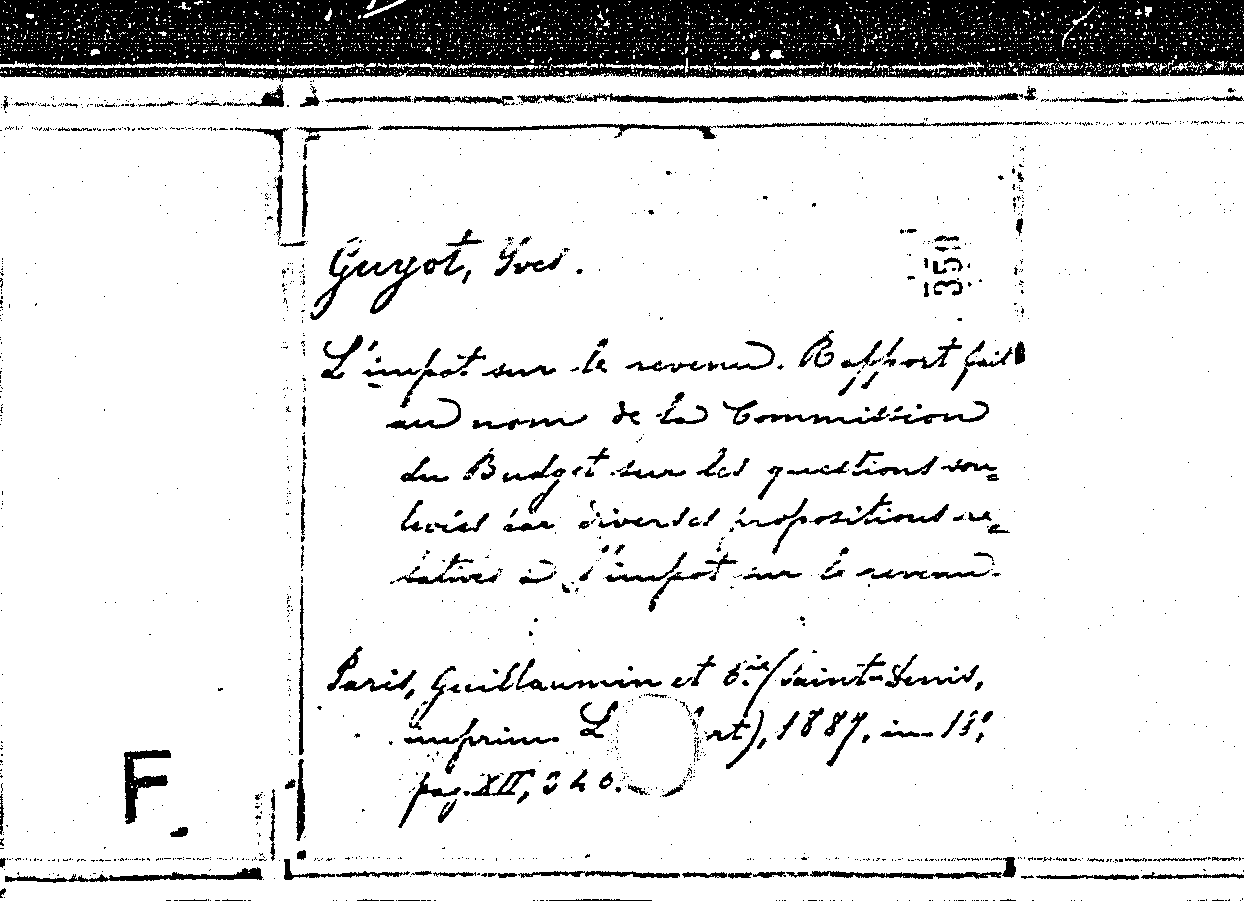 Guyot, Yves.
350
L'impot sur le revenu. Rapport fait
au nom de la Commission
du Budget sur les questions sou=
levées par diverses propositions re=
latives à l'impot sur le revenu.
Paris, Guillaumin et C.ie (Saint-Denis,
imprim. L rt), 1887, in 18º,
pag. XII, 346.
F.